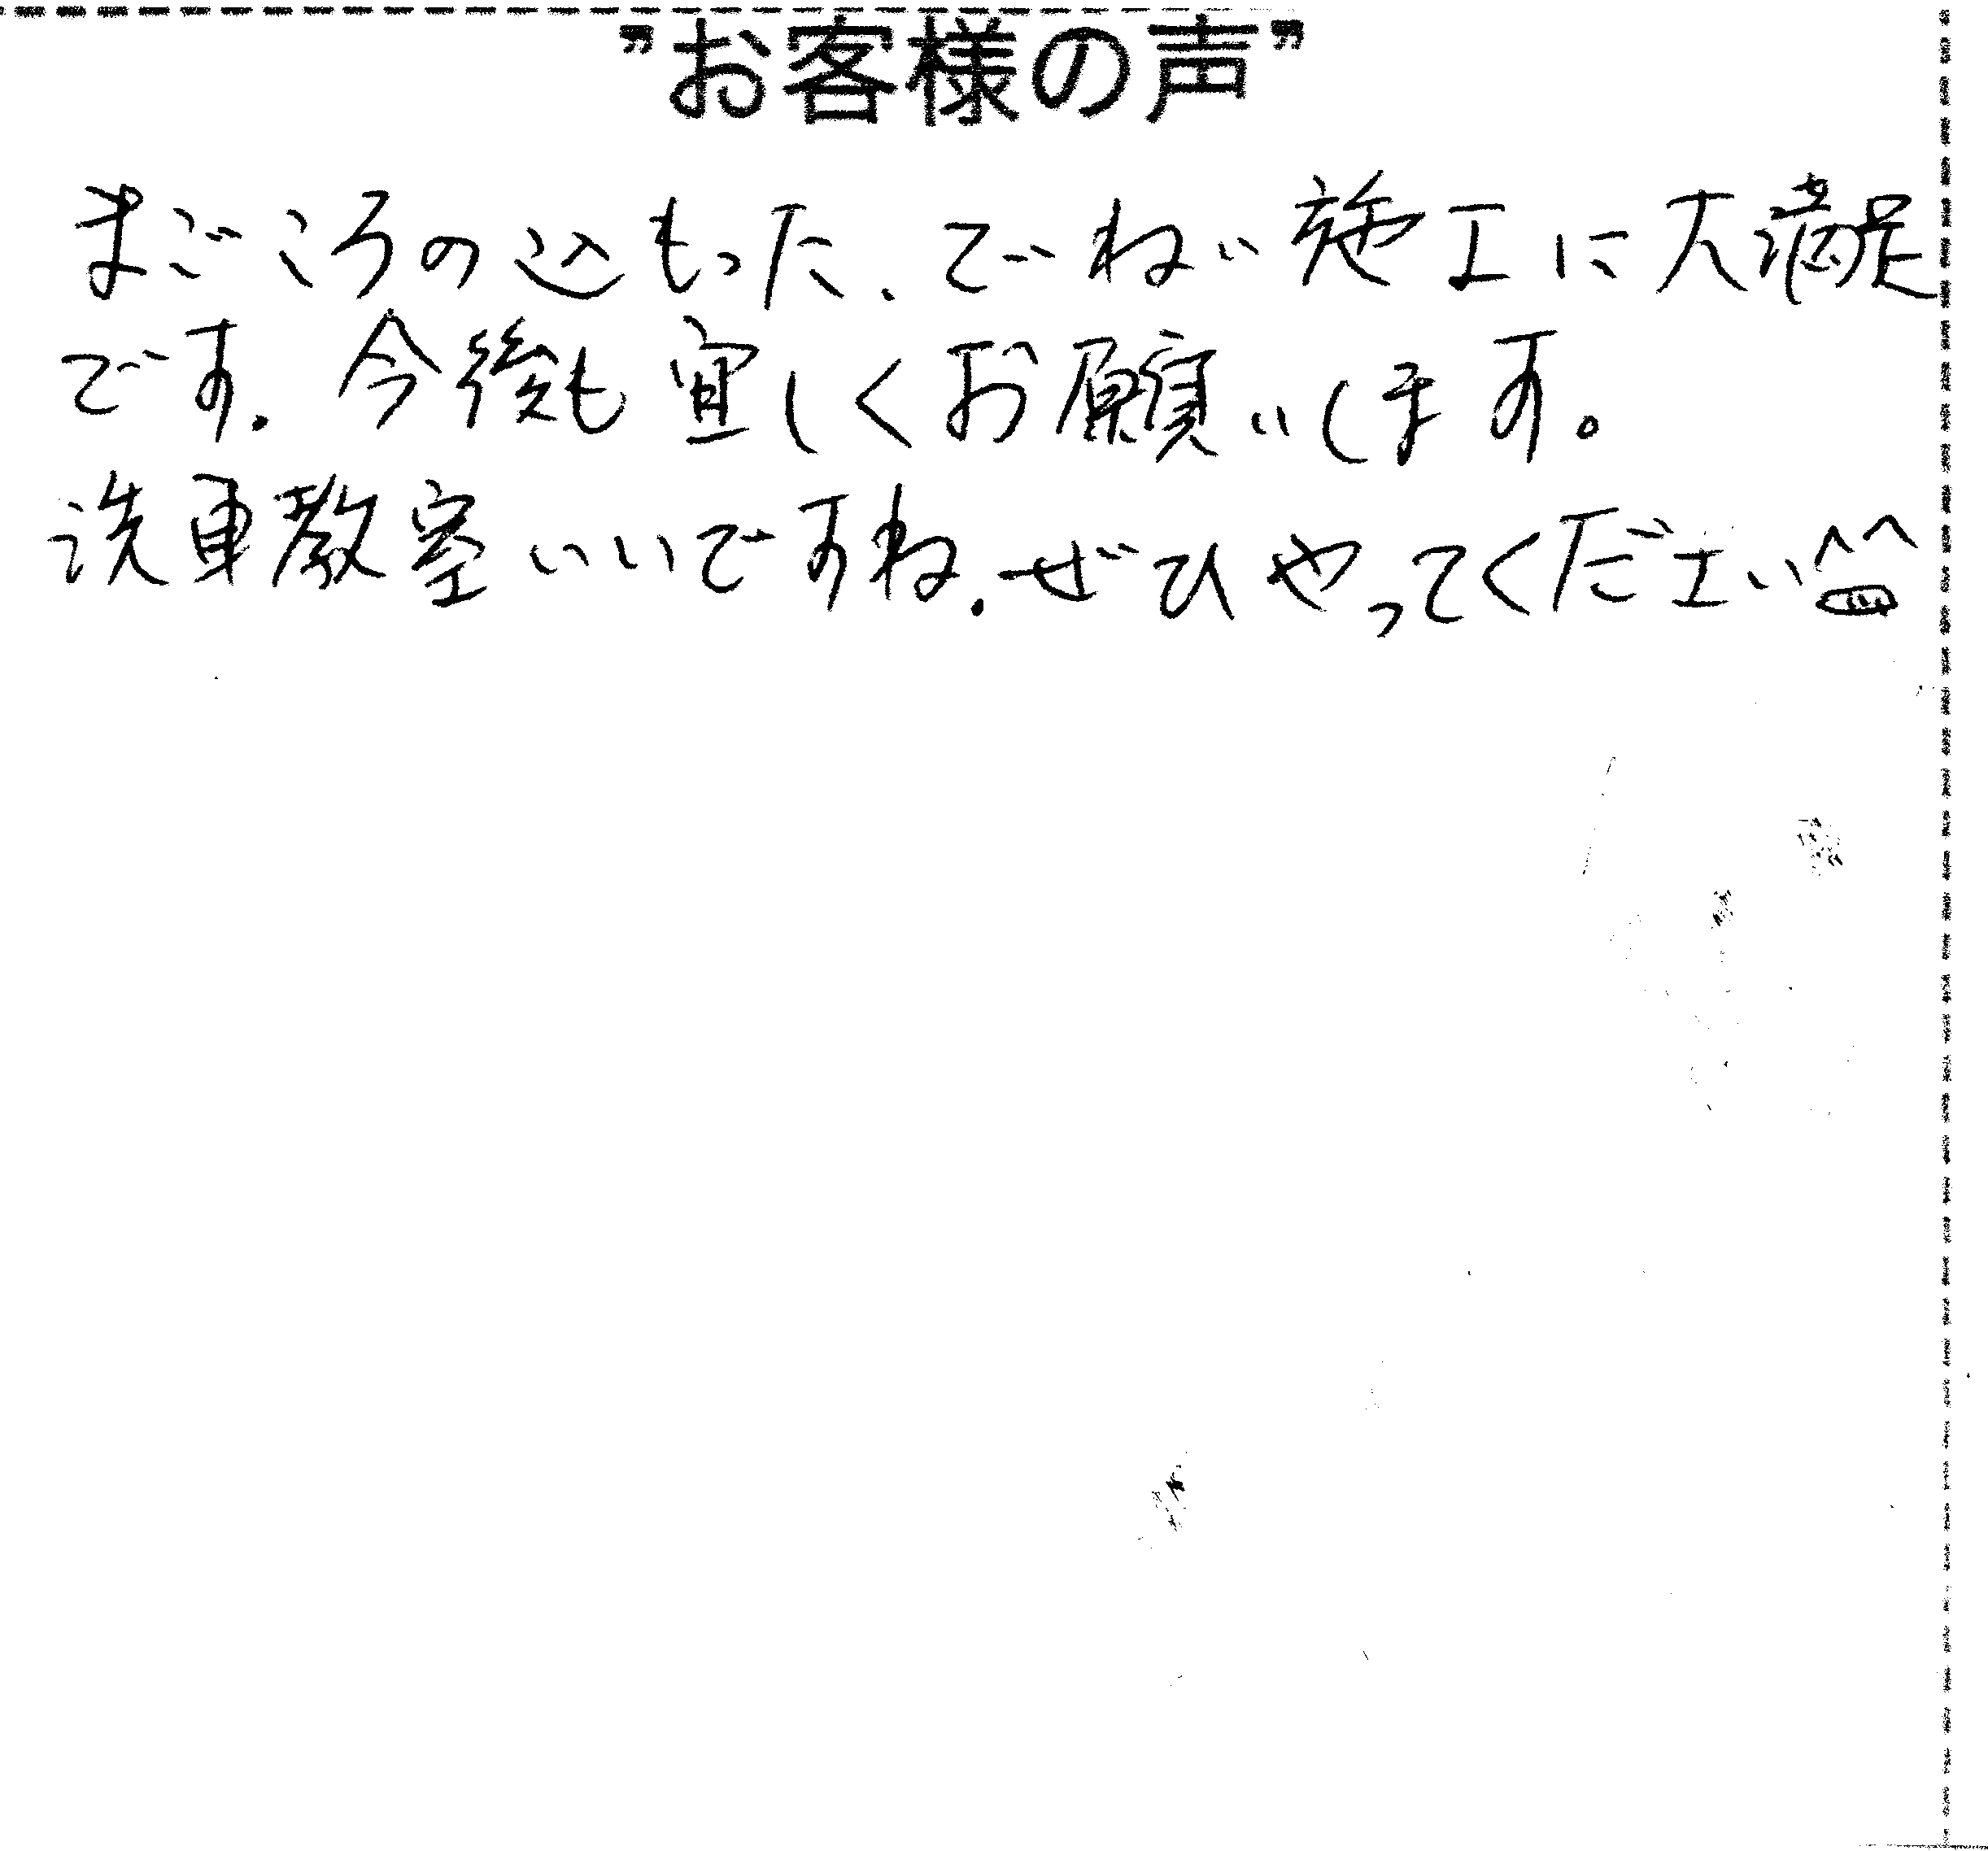 "お客様の声"
まごころの込もった、でねい施工に大満足
です。今後も宜しくお願いします。
洗車教室いいですね。ぜひやってくだエい^^